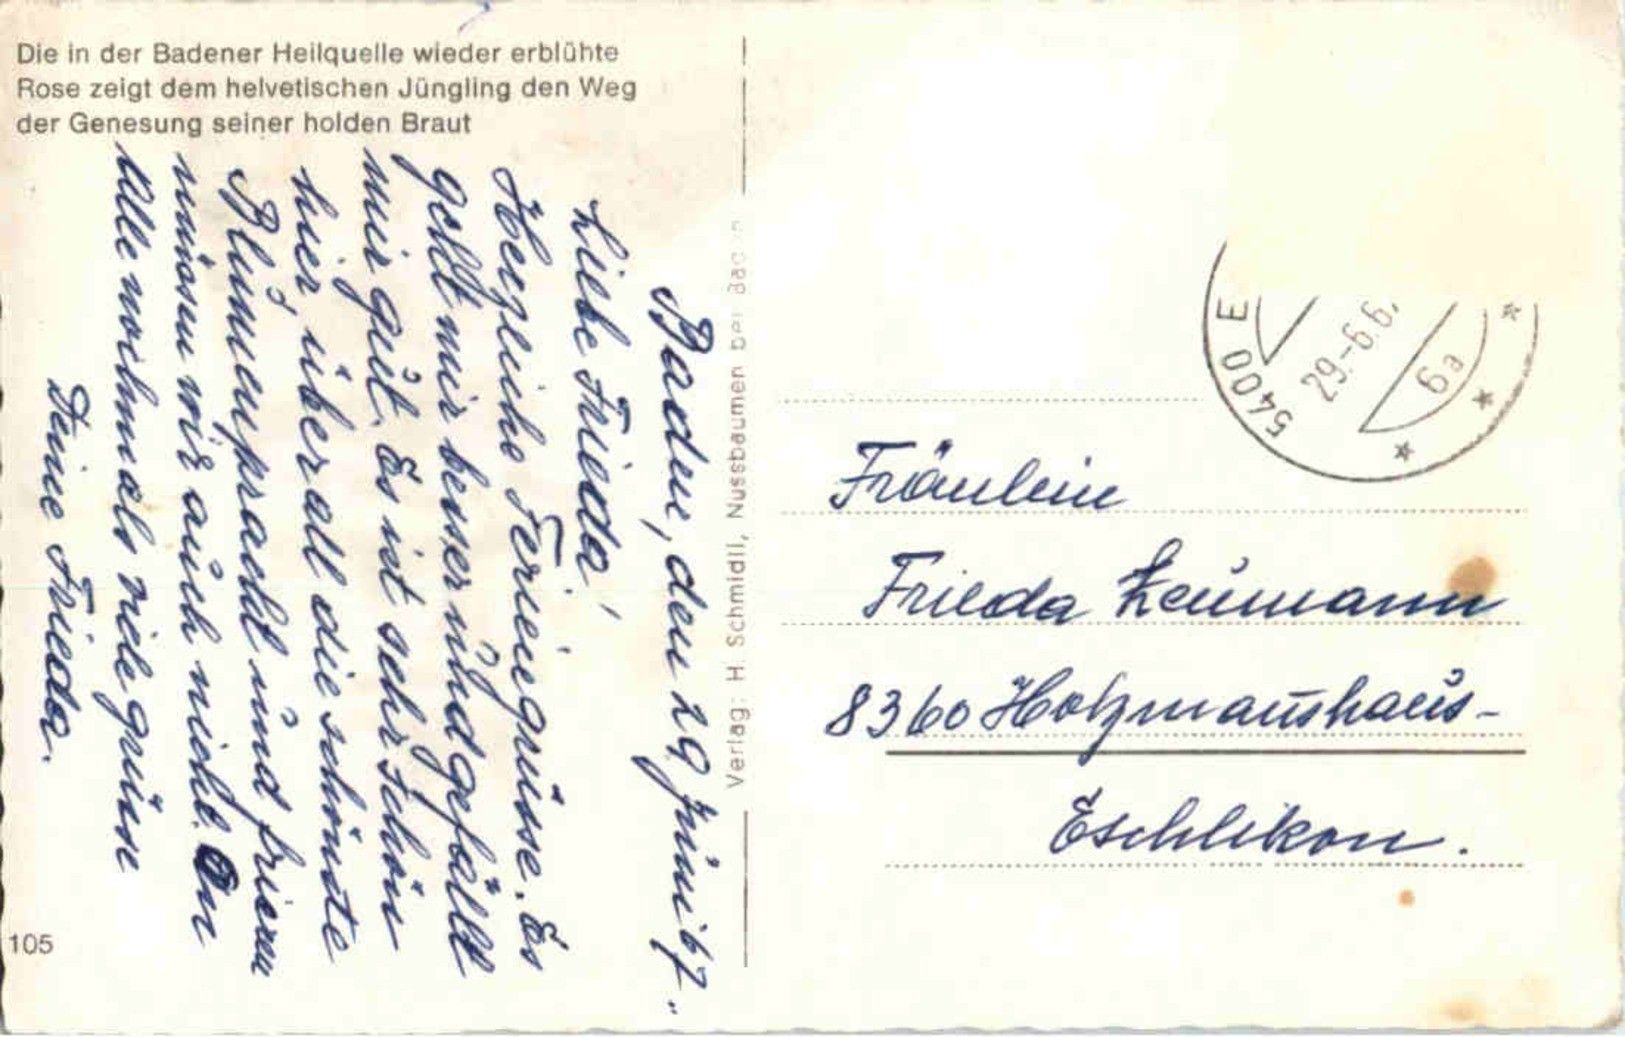 Die in der Badener Heilquelle wieder erblühte
Rose zeigt dem helvetischen Jüngling den Weg
der Genesung seiner holden Braut
Baden, den 29 Juni 67.
Liebe Frieda!
Herzliche Feriengrüsse. Es
geht mir besser und gefällt
mir gut. Es ist sehr schön
hier, überall die schönste
Blumenpracht und frieren
müssen wir auch nicht. An
Alle nochmals viele grüsse
Deine Frieda.
105
Verlag: H Schmidli, Nussbaumen bei Baden
5400
29.-6.6.
6a
Fräulein
Frieda Leumann
8360 Holzmanshaus-
Eschlikon.